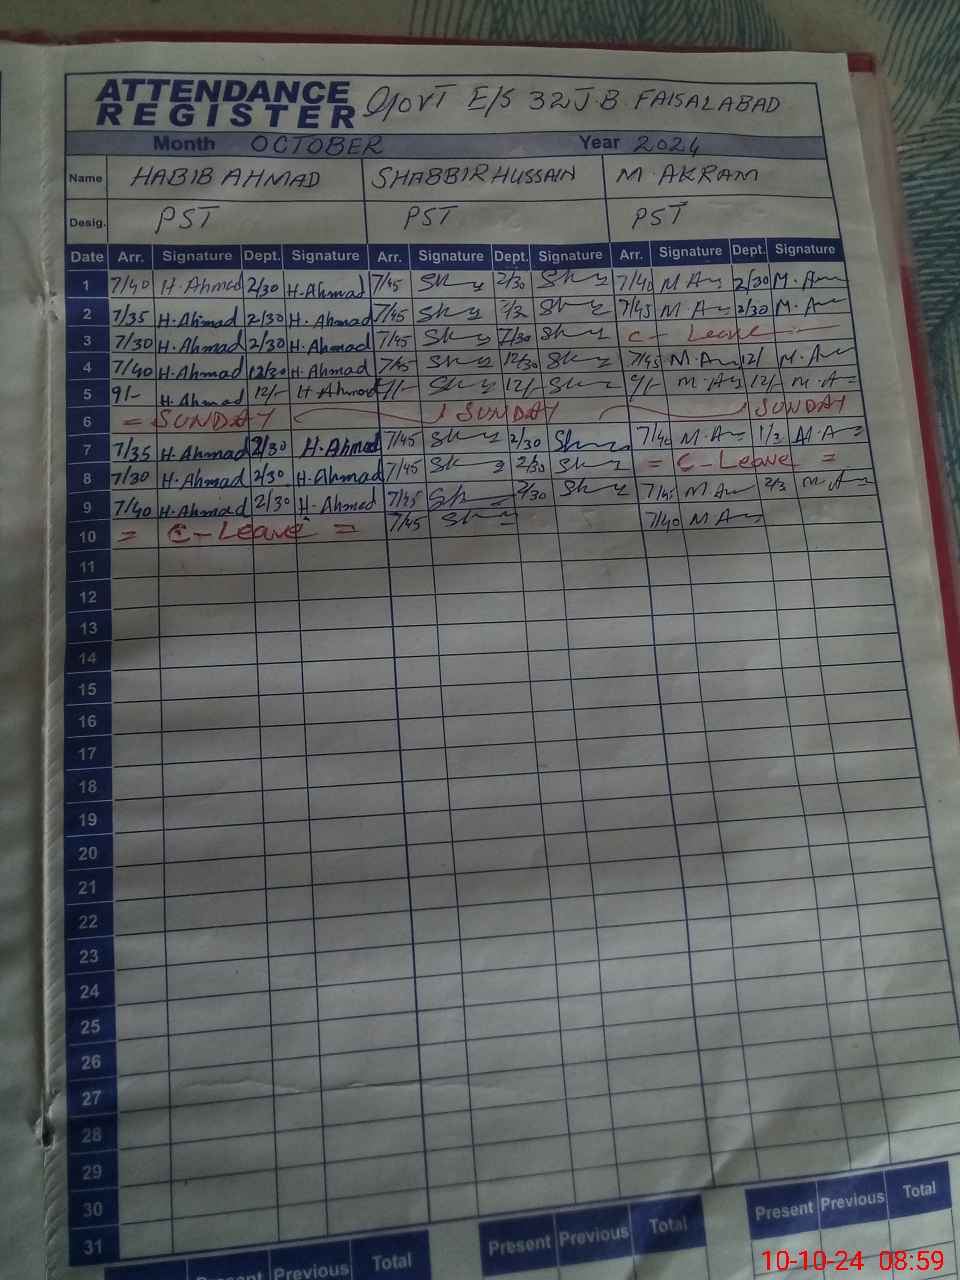 ATTENDANCE REGISTER GOVT E/S 32 J.B FAISALABAD
Month OCTOBER Year 2024
Name HABIB AHMAD SHABBIR HUSSAIN M. AKRAM
Desig. PST PST PST
Date Arr. Signature Dept. Signature Arr. Signature Dept. Signature Arr. Signature Dept. Signature
1 7/40 H.Ahmad 2/30 H.Ahmad 7/45 2/30 7/40 2/30
2 7/35 H.Ahmad 2/30 H.Ahmad 7/45 7/45 2/30
3 7/30 H.Ahmad 2/30 H.Ahmad 7/45 C- Leave
4 7/40 H.Ahmad 12/30 H.Ahmad 7/45 12/30 7/45 12/
5 9/- H.Ahmad 12/- H.Ahmad 9/- 12/- 9/- 12/-
6 = SUNDAY SUNDAY SUNDAY
7 7/35 H.Ahmad 2/30 H.Ahmad 7/45 2/30 7/40
8 7/30 H.Ahmad 2/30 H.Ahmad 7/45 2/30 = C-Leave =
9 7/40 H.Ahmad 2/30 H.Ahmed 7/45 2/30 7/45 2/3
10 = C-Leave = 7/45 7/40
11
12
13
14
15
16
17
18
19
20
21
22
23
24
25
26
27
28
29
30
31
Present Previous Total Present Previous Total Present Previous Total
10-10-24 08:59